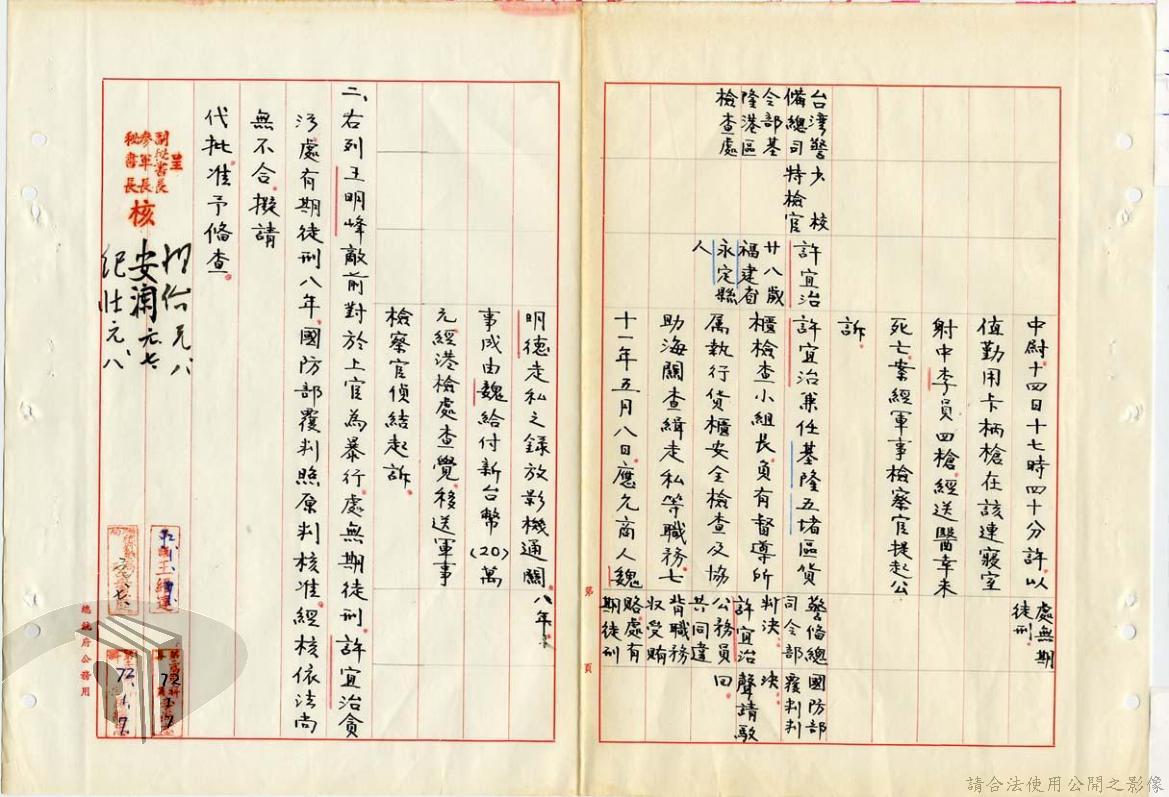 中尉十四日十七時四十分許。以
值勤用卡柄槍在該連寢室
射中李員四槍。經送醫幸未
死亡。案經軍事檢察官提起公
訴。
處無期
徒刑。
台灣警
備總司
令部基
隆港區
檢查處
少校
特檢官
許宜治
廿八歲
福建省
永定縣
人
許宜治兼任基隆五堵區貨
櫃檢查小組長。負有督導所
屬執行貨櫃安全檢查及協
助海關查緝走私等職務。七
十一年五月八日。應允商人魏
警備總
司令部
判決。
許宜治
公務員
共同違
背職務
收受賄
賂。處有
期徒刑
國防部
覆判判
決。
聲請駁
回。
第 頁
明德走私之錄放影機通關。
事成由魏給付新台幣(20)萬
元。經港檢處查覺。移送軍事
檢察官偵結起訴。
八年。
二、右列王明峰敵前對於上官為暴行。處無期徒刑。許宜治貪
污。處有期徒刑八年。國防部覆判照原判核准。經核依法尚
無不合。擬請
代批准予備查。
呈
副秘書長
參軍長
秘書長
核
總統府公務用
請合法使用公開之影像